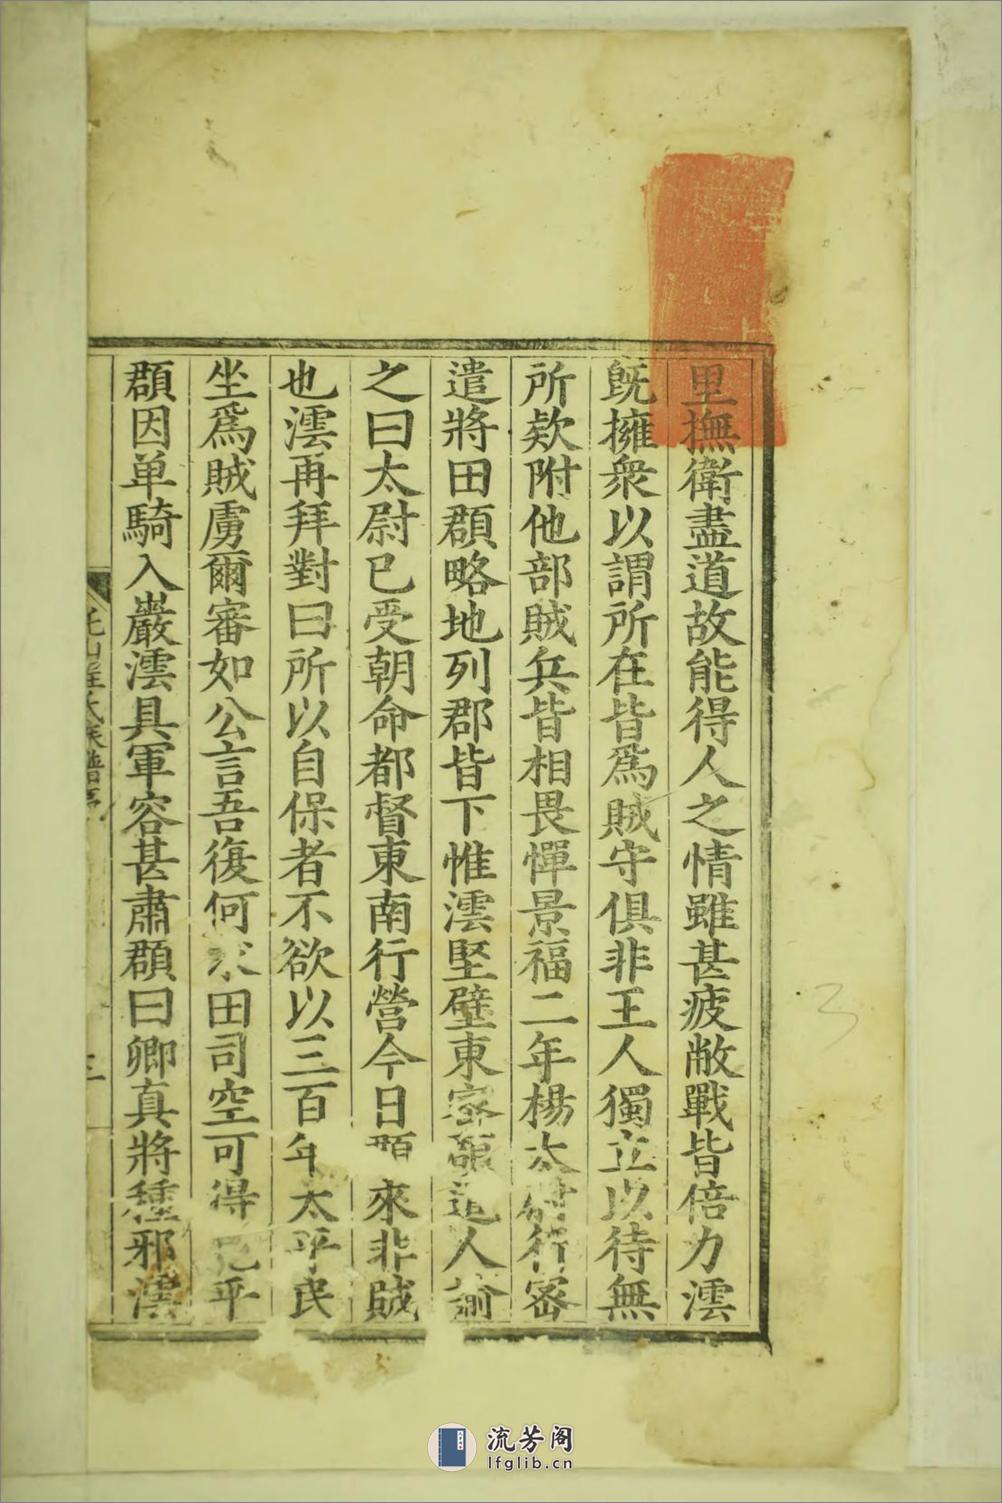 里撫衛盡道故能得人之情雖甚疲敝戰皆倍力澐
既擁衆以謂所在皆爲賊守俱非王人獨立以待無
所欵附他部賊兵皆相畏憚景福二年楊太尉行密
遣將田頵略地列郡皆下惟澐堅壁東密頵遣人諭
之曰太尉已受朝命都督東南行營今日頵來非賊
也澐再拜對曰所以自保者不欲以三百年太平民
坐爲賊虜爾審如公言吾復何求田司空可得見乎
頵因单騎入巖澐具軍容甚肅頵曰卿真將種邪澐
氏族譜序
三
流芳阁
lfglib.cn